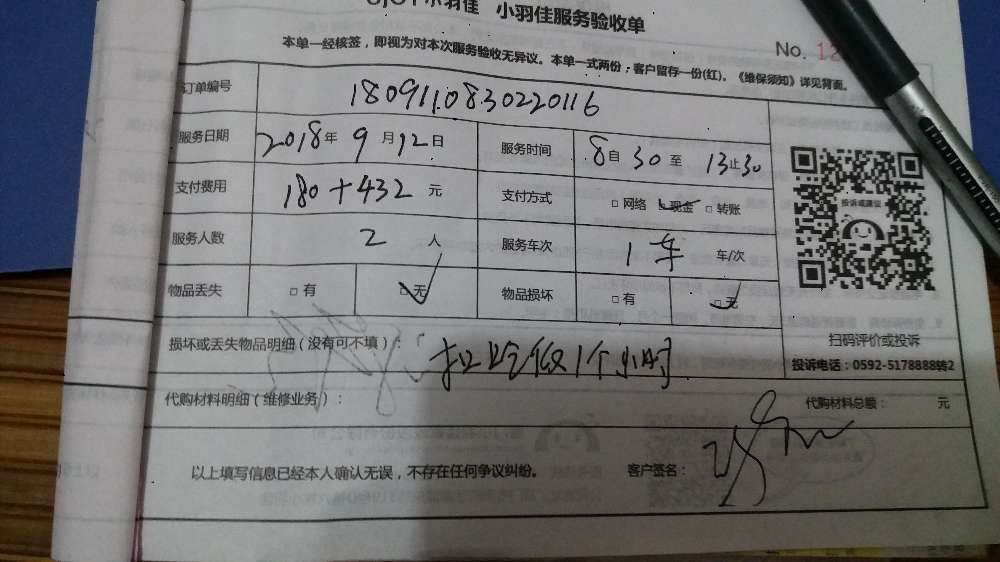 小羽佳 小羽佳服务验收单
No. 12
本单一经核签，即视为对本次服务验收无异议。本单一式两份，客户留存一份(红)。《维保须知》详见背面。
订单编号 1809110830220116
服务日期 2018年9月12日 服务时间 8自30至13止30
支付费用 180+432元 支付方式 □网络 ☑现金 □转账
服务人数 2人 服务车次 1车 车/次
物品丢失 □有 ☑无 物品损坏 □有 ☑无
投诉或建议
扫码评价或投诉
投诉电话：0592-5178888转2
损坏或丢失物品明细（没有可不填）： 1个小时
代购材料明细（维修业务）： 代购材料总额： 元
以上填写信息已经本人确认无误，不存在任何争议纠纷。 客户签名：